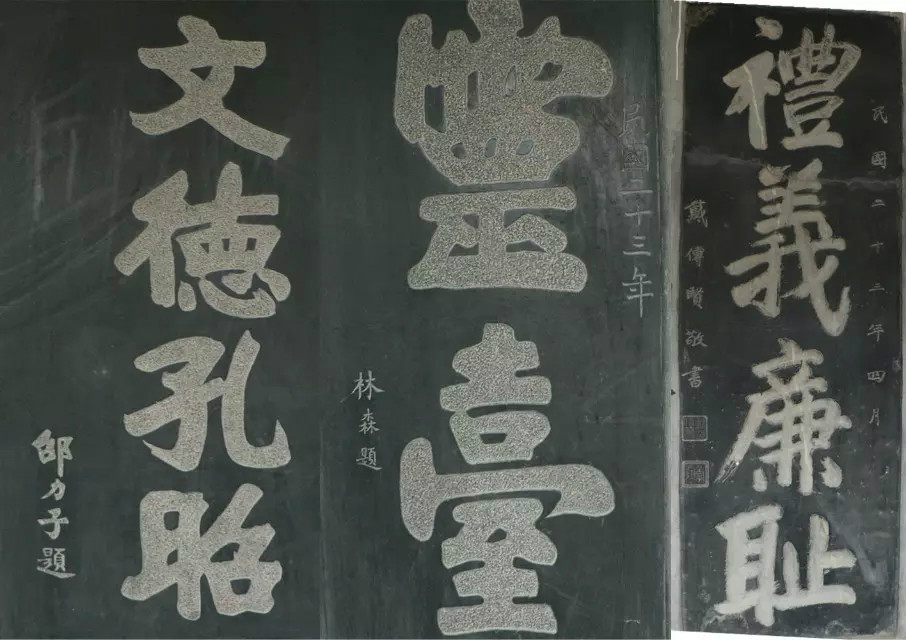 文德孔昭
邵力子題
民國二十三年
靈臺
林森題
民國二十三年四月
禮義廉恥
戴傳賢敬書